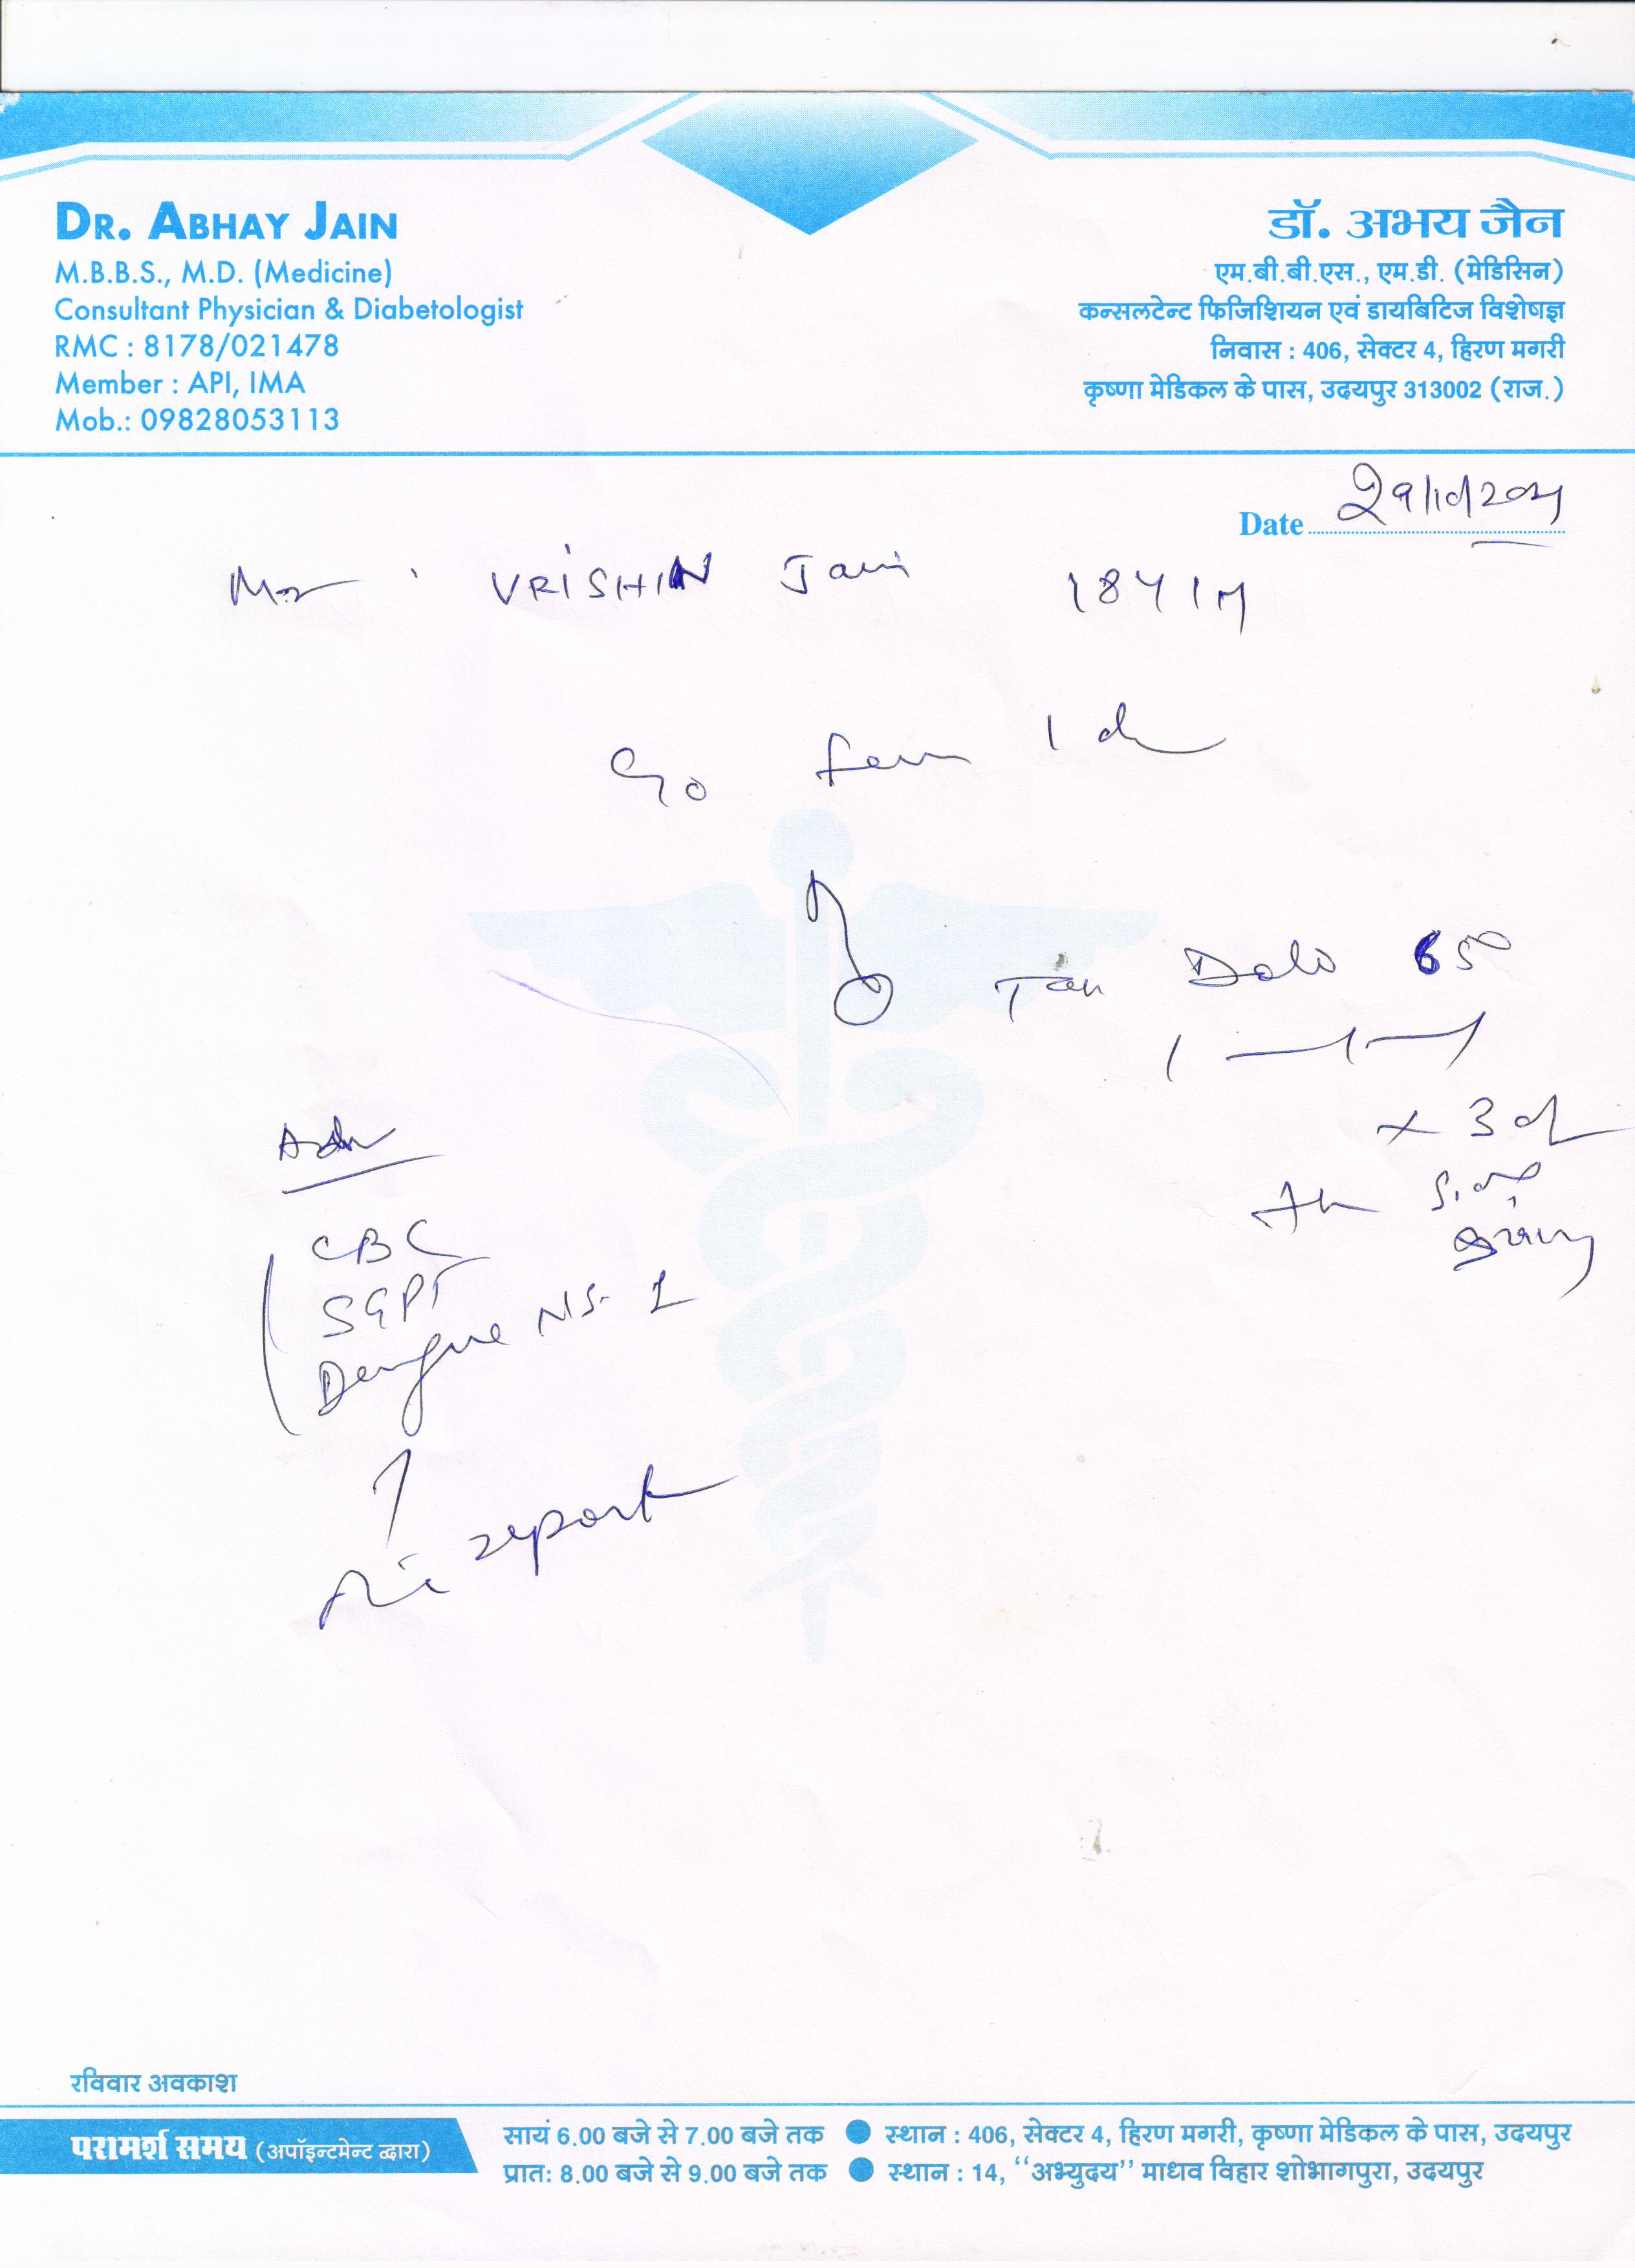 DR. ABHAY JAIN
M.B.B.S., M.D. (Medicine)
Consultant Physician & Diabetologist
RMC : 8178/021478
Member : API, IMA
Mob.: 09828053113
डॉ. अभय जैन
एम.बी.बी.एस., एम.डी. (मेडिसिन)
कन्सलटेन्ट फिजिशियन एवं डायबिटिज विशेषज्ञ
निवास : 406, सेक्टर 4, हिरण मगरी
कृष्णा मेडिकल के पास, उदयपुर 313002 (राज.)
Date 29/10/2021
Mr VRISHIN Jain 18Y/M
1 d
Tab Dolo 650
1 — 1 — 1
x 3 d
Adv
CBC
SGPT
Dengue NS-1
report
रविवार अवकाश
परामर्श समय (अपॉइन्टमेन्ट द्वारा)
सायं 6.00 बजे से 7.00 बजे तक ● स्थान : 406, सेक्टर 4, हिरण मगरी, कृष्णा मेडिकल के पास, उदयपुर
प्रातः 8.00 बजे से 9.00 बजे तक ● स्थान : 14, ‘‘अभ्युदय’’ माधव विहार शोभागपुरा, उदयपुर